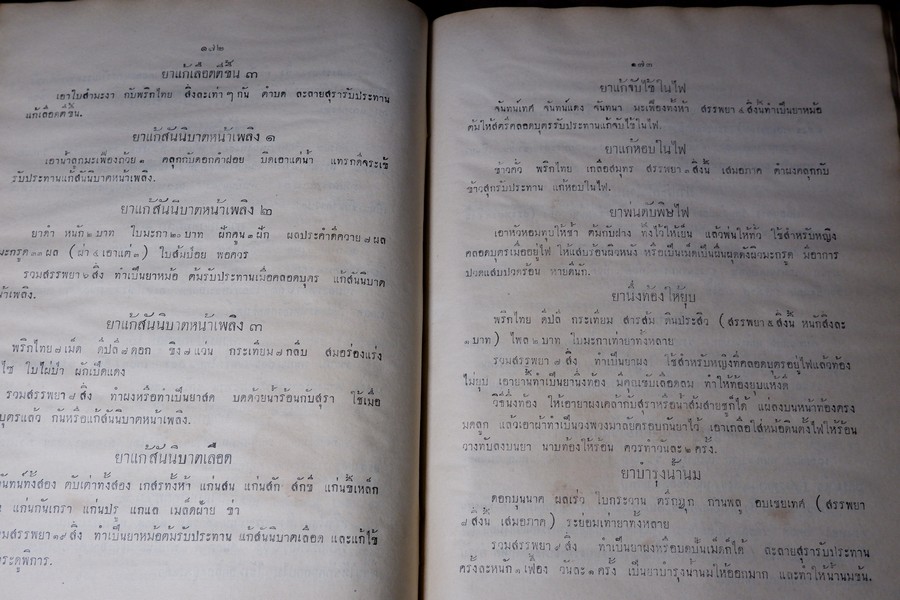 ๑๗๒
ยาแก้เลือดตีขึ้น ๓
เอาใบสำมะงา กับพริกไทย สิ่งละเท่า ๆ กัน ตำบด ละลายสุรารับประทาน
แก้เลือดตีขึ้น.
ยาแก้สันนิบาตหน้าเพลิง ๑
เอาน้ำลูกมะเฟืองถ้วย ๑ คลุกกับดอกคำฝอย บิดเอาแต่น้ำ แทรกดีจระเข้
รับประทานแก้สันนิบาตหน้าเพลิง.
ยาแก้สันนิบาตหน้าเพลิง ๒
ยาดำ หนัก ๒ บาท ใบมะกา ๒๐ บาท ฝักคูน ๑ ฝัก ผลประคำดีควาย ๗ ผล
มะกรูด ๓๓ ผล (ผ่า ๔ เอาแต่ ๓) ใบส้มป่อย พอควร
รวมสรรพยา ๖ สิ่ง ทำเป็นยาหม้อ ต้มรับประทานเมื่อคลอดบุตร แก้สันนิบาต
หน้าเพลิง.
ยาแก้สันนิบาตหน้าเพลิง ๓
พริกไทย ๗ เม็ด ดีปลี ๗ ดอก ขิง ๗ แว่น กระเทียม ๗ กลีบ สมอร่องแร่ง
ไซ ใบไผ่ป่า ผักเป็ดแดง
รวมสรรพยา ๘ สิ่ง ทำผงหรือทำเป็นยาสด บดด้วยน้ำร้อนกับสุรา ใช้เมื่อ
บุตรแล้ว กันหรือแก้สันนิบาตหน้าเพลิง.
ยาแก้สันนิบาตเลือด
จันทน์ทั้งสอง ตับเต่าทั้งสอง เกสรทั้งห้า แก่นสน แก่นสัก สักขี แก่นขี้เหล็ก
แก่นกันเกรา แก่นปรู แกแล เมล็ดฝ้าย ข่า
รวมสรรพยา ๑๙ สิ่ง ทำเป็นยาหม้อต้มรับประทาน แก้สันนิบาตเลือด และแก้ไข้
ระดูพิการ.
๑๗๓
ยาแก้จับไข้ในไฟ
จันทน์เทศ จันทน์แดง จันทนา มะเฟืองทั้งห้า สรรพยา ๔ สิ่งนี้ทำเป็นยาหม้อ
ต้มให้สตรีคลอดบุตรรับประทานแก้จับไข้ในไฟ.
ยาแก้หอบในไฟ
ข้าวคั่ว พริกไทย เกลือสมุทร สรรพยา ๓ สิ่งนี้ เสมอภาค ตำผงคลุกกับ
ข้าวสุกรับประทาน แก้หอบในไฟ.
ยาพ่นดับพิษไฟ
เอาหัวหอมทุบให้ช้ำ ต้มกับฝาง ทิ้งไว้ให้เย็น แล้วพ่นให้ทั่ว ใช้สำหรับหญิง
คลอดบุตรเมื่ออยู่ไฟ ให้แสบร้อนผิวหนัง หรือเป็นเม็ดเป็นผื่นผุดดังผิวมะกรูด มีอาการ
ปวดแสบปวดร้อน หายดีนัก.
ยานึ่งท้องให้ยุบ
พริกไทย ดีปลี กระเทียม สารส้ม ดินประสิว (สรรพยา ๕ สิ่งนี้ หนักสิ่งละ
๑ บาท) ไพล ๒ บาท ใบมะกาเท่ายาทั้งหลาย
รวมสรรพยา ๗ สิ่ง ทำเป็นยาผง ใช้สำหรับหญิงที่คลอดบุตรอยู่ไฟแล้วท้อง
ไม่ยุบ เอายานี้ทำเป็นยานึ่งท้อง มีคุณขับเลือดลม ทำให้ท้องยุบแห้งดี
วิธีนึ่งท้อง ให้เอายาผงเคล้ากับสุราหรือน้ำส้มสายชูก็ได้ แผ่ลงบนหน้าท้องตรง
มดลูก แล้วเอาผ้าทำเป็นวงพวงมาลัยครอบกันยาไว้ เอาเกลือใส่หม้อดินตั้งไฟให้ร้อน
วางทับลงบนยา นาบท้องให้ร้อน ควรทำวันละ ๒ ครั้ง.
ยาบำรุงน้ำนม
ดอกบุนนาค ผลเร่ว ใบกระวาน ตรีกฏุก กานพลู อบเชยเทศ (สรรพยา
๘ สิ่งนี้ เสมอภาค) ระย่อมเท่ายาทั้งหลาย
รวมสรรพยา ๙ สิ่ง ทำเป็นยาผงหรือบดปั้นเม็ดก็ได้ ละลายสุรารับประทาน
ครั้งละหนัก ๑ เฟื้อง วันละ ๑ ครั้ง เป็นยาบำรุงน้ำนมให้ออกมาก และทำให้น้ำนมข้น.